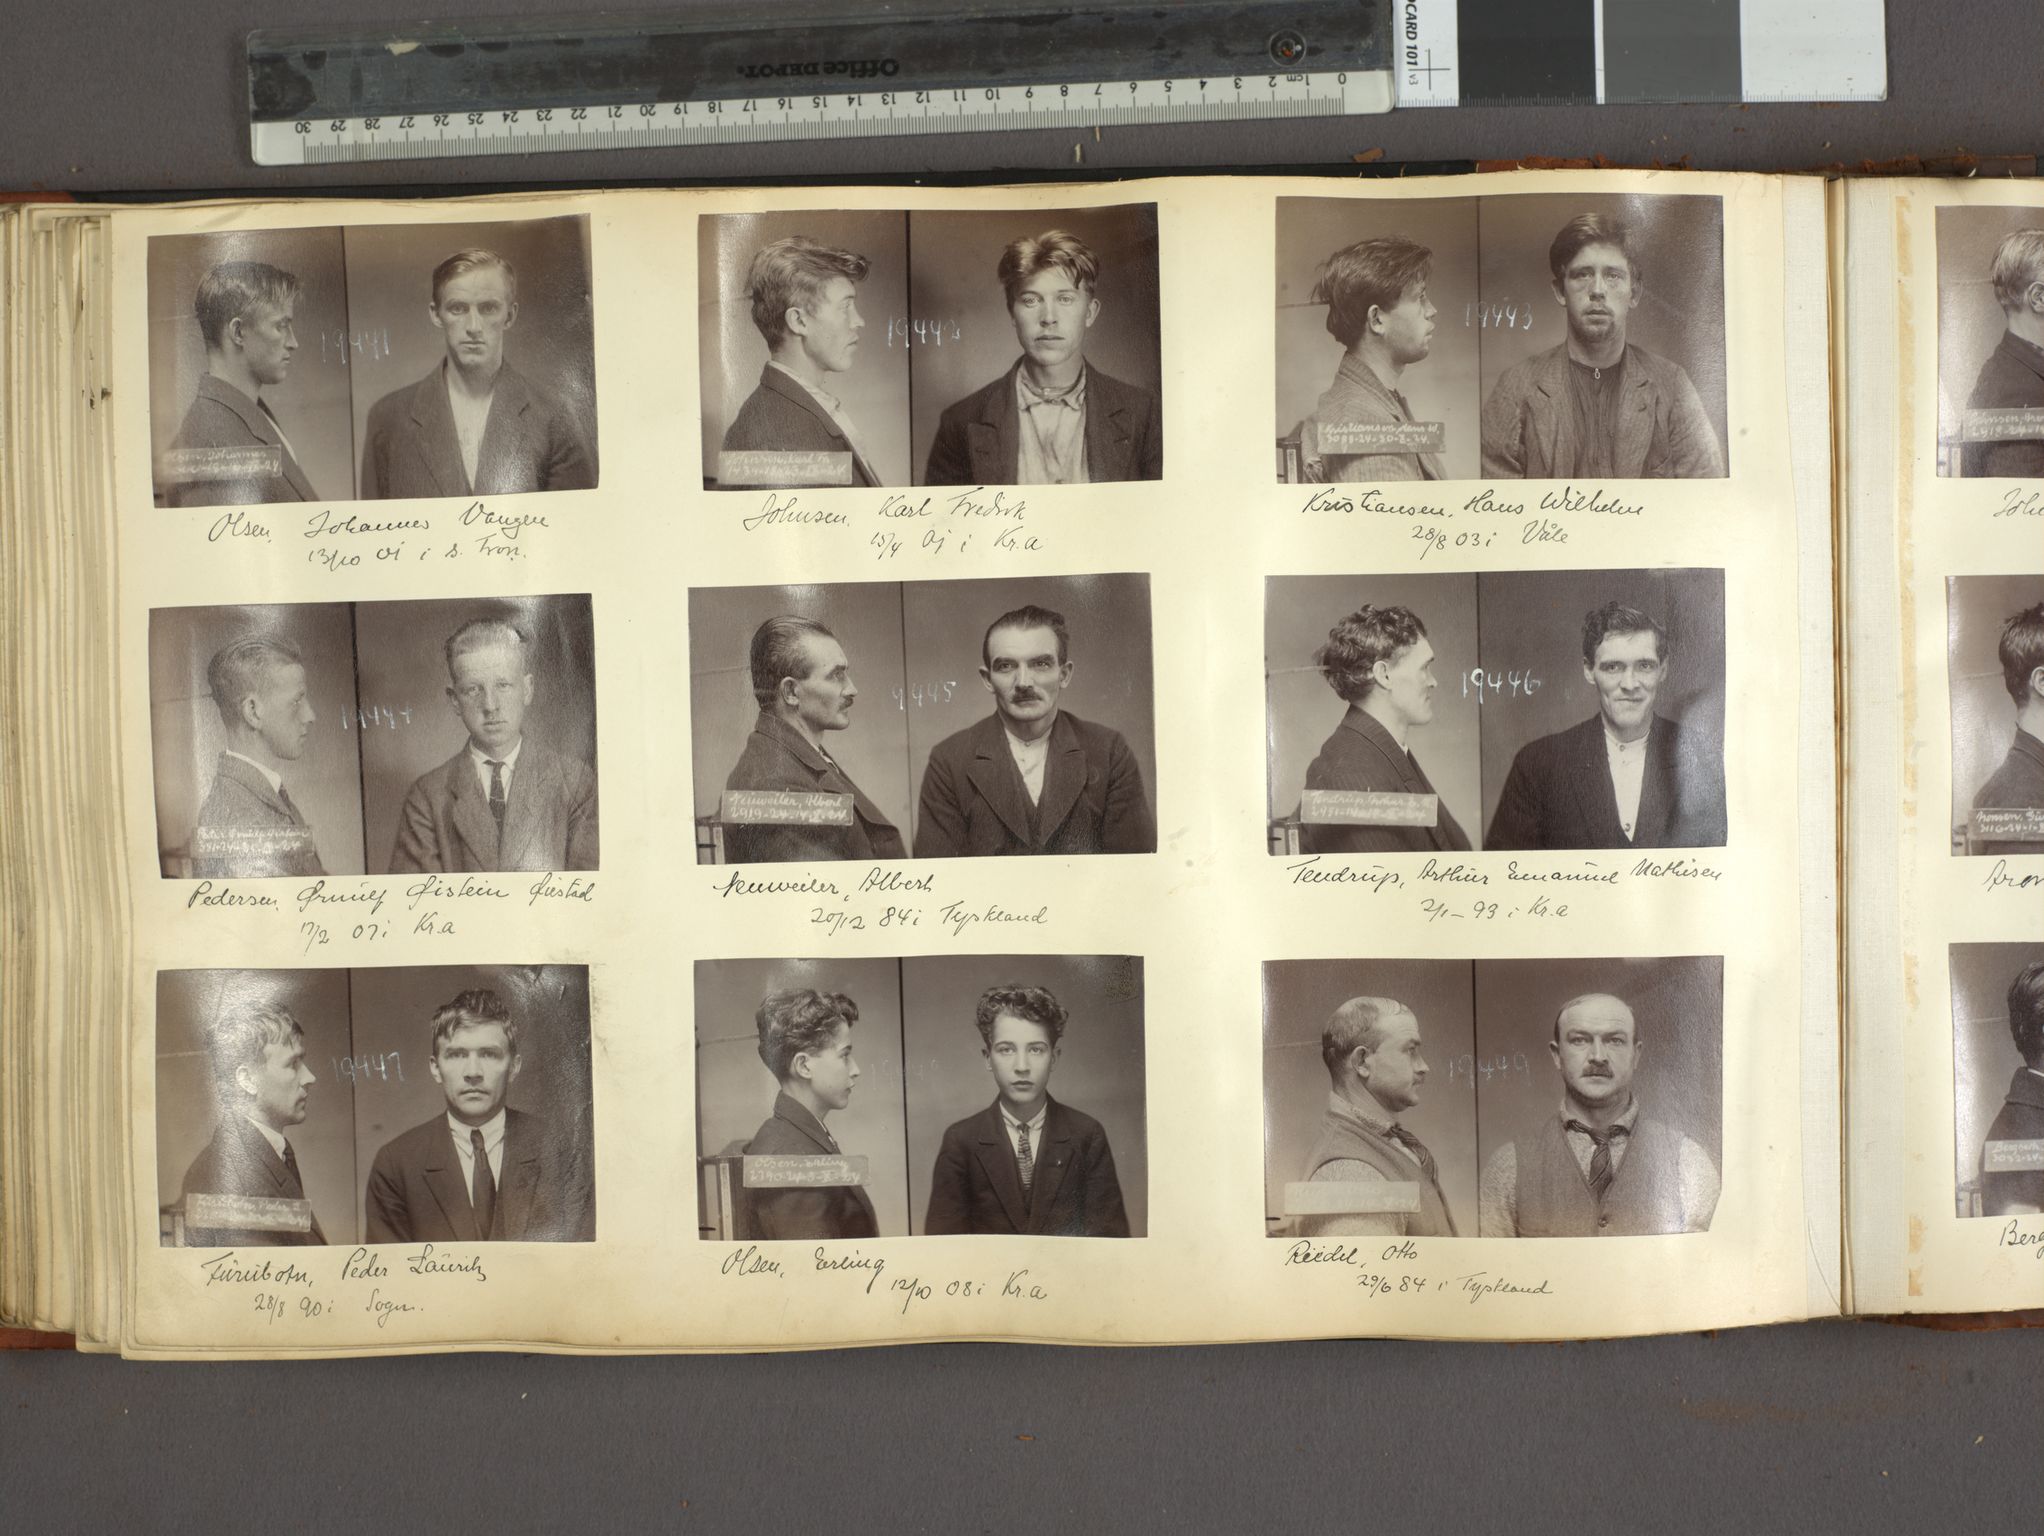 Office DEPOT.
0 1cm 2 3 4 5 6 7 8 9 10 11 12 13 14 15 16 17 18 19 20 21 22 23 24 25 26 27 28 29 30
CARD 101 v3
19441
Olsen, Johannes Vangen
13/10 01 i s. Fron.
19442
Johnsen, Karl Fredrik
15/4 01 i Kr.a
19443
Kristiansen, Hans W.
3088-24-30-X-24.
Kristiansen, Hans Wilhelm
28/8 03 i Våle
19444
Pedersen, Ørnulf Øistein Øistad
17/2 07 i Kr.a
9445
Neuweiler, Albert
2919-24-14-X-24
Neuweiler, Albert
20/12 84 i Tyskland
19446
Tendrup, Arthur Emanuel Mathisen
2/1-93 i Kr.a
19447
Furubotn, Peder Lauritz
28/8 90 i Sogn.
Olsen, Erling
2790-24-3-X-24
Olsen, Erling
12/10 08 i Kr.a
19449
Riedel, Otto
29/6 84 i Tyskland
Joh
Aron
Berg